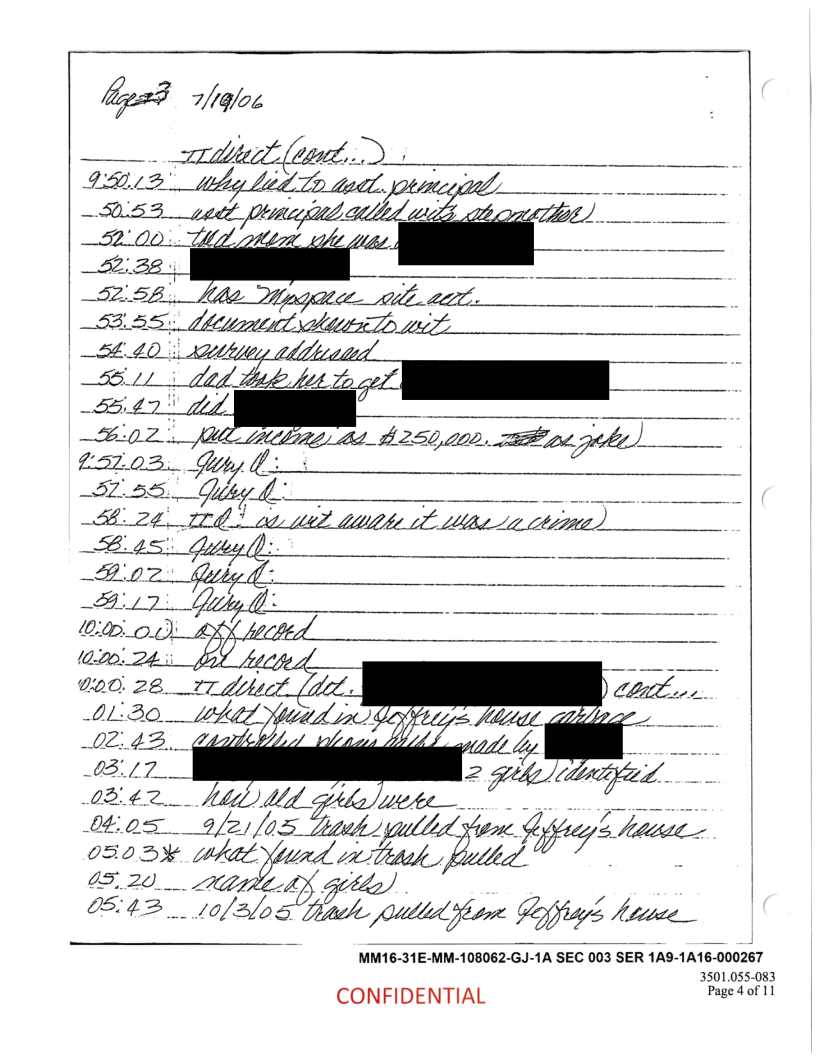 Page 3 7/19/06
π direct (cont...)
9:50:13 why lied to asst. principal
50:53 asst principal called wit's stepmother
52:00 told mom she was
52:38
52:58 has Myspace site acct.
53:55 document shown to wit
54:40 survey addressed
55:11 dad took her to get
55:47 did
56:02 put income as $250,000. as joke
9:57:03 Jury Q:
57:55 Jury Q:
58:24 π Q: is wit aware it was a crime
58:45 Jury Q:
59:02 Jury Q:
59:17 Jury Q:
10:00:00 off record
10:00:24 on record
10:00:28 π direct (det. ) cont...
01:30 what found in Jeffrey's house garbage
02:43 controlled phone calls made by
03:17 2 girls identified
03:42 how old girls were
04:05 9/21/05 trash pulled from Jeffrey's house
05:03* what found in trash pulled
05:20 name of girls
05:43 10/3/05 trash pulled from Jeffrey's house
MM16-31E-MM-108062-GJ-1A SEC 003 SER 1A9-1A16-000267
3501.055-083
Page 4 of 11
CONFIDENTIAL